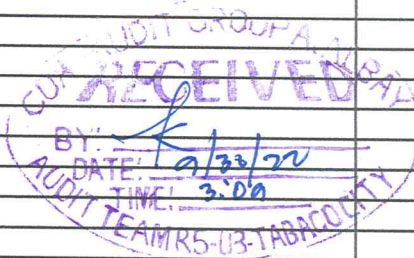 AUDIT GROUP A, ALBAY
RECEIVED
BY:
DATE: 9/23/22
TIME: 3:00
AUDIT TEAM R5-03-TABACO CITY